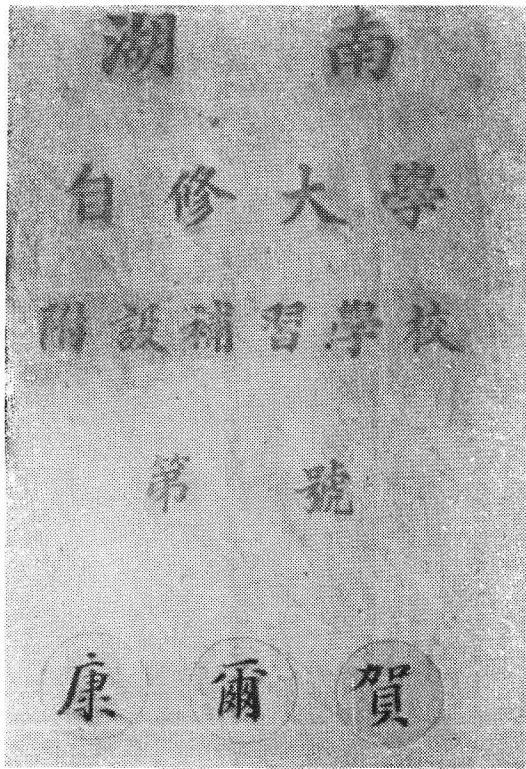 湖南
自修大學
附設補習學校
第 號
康爾賀